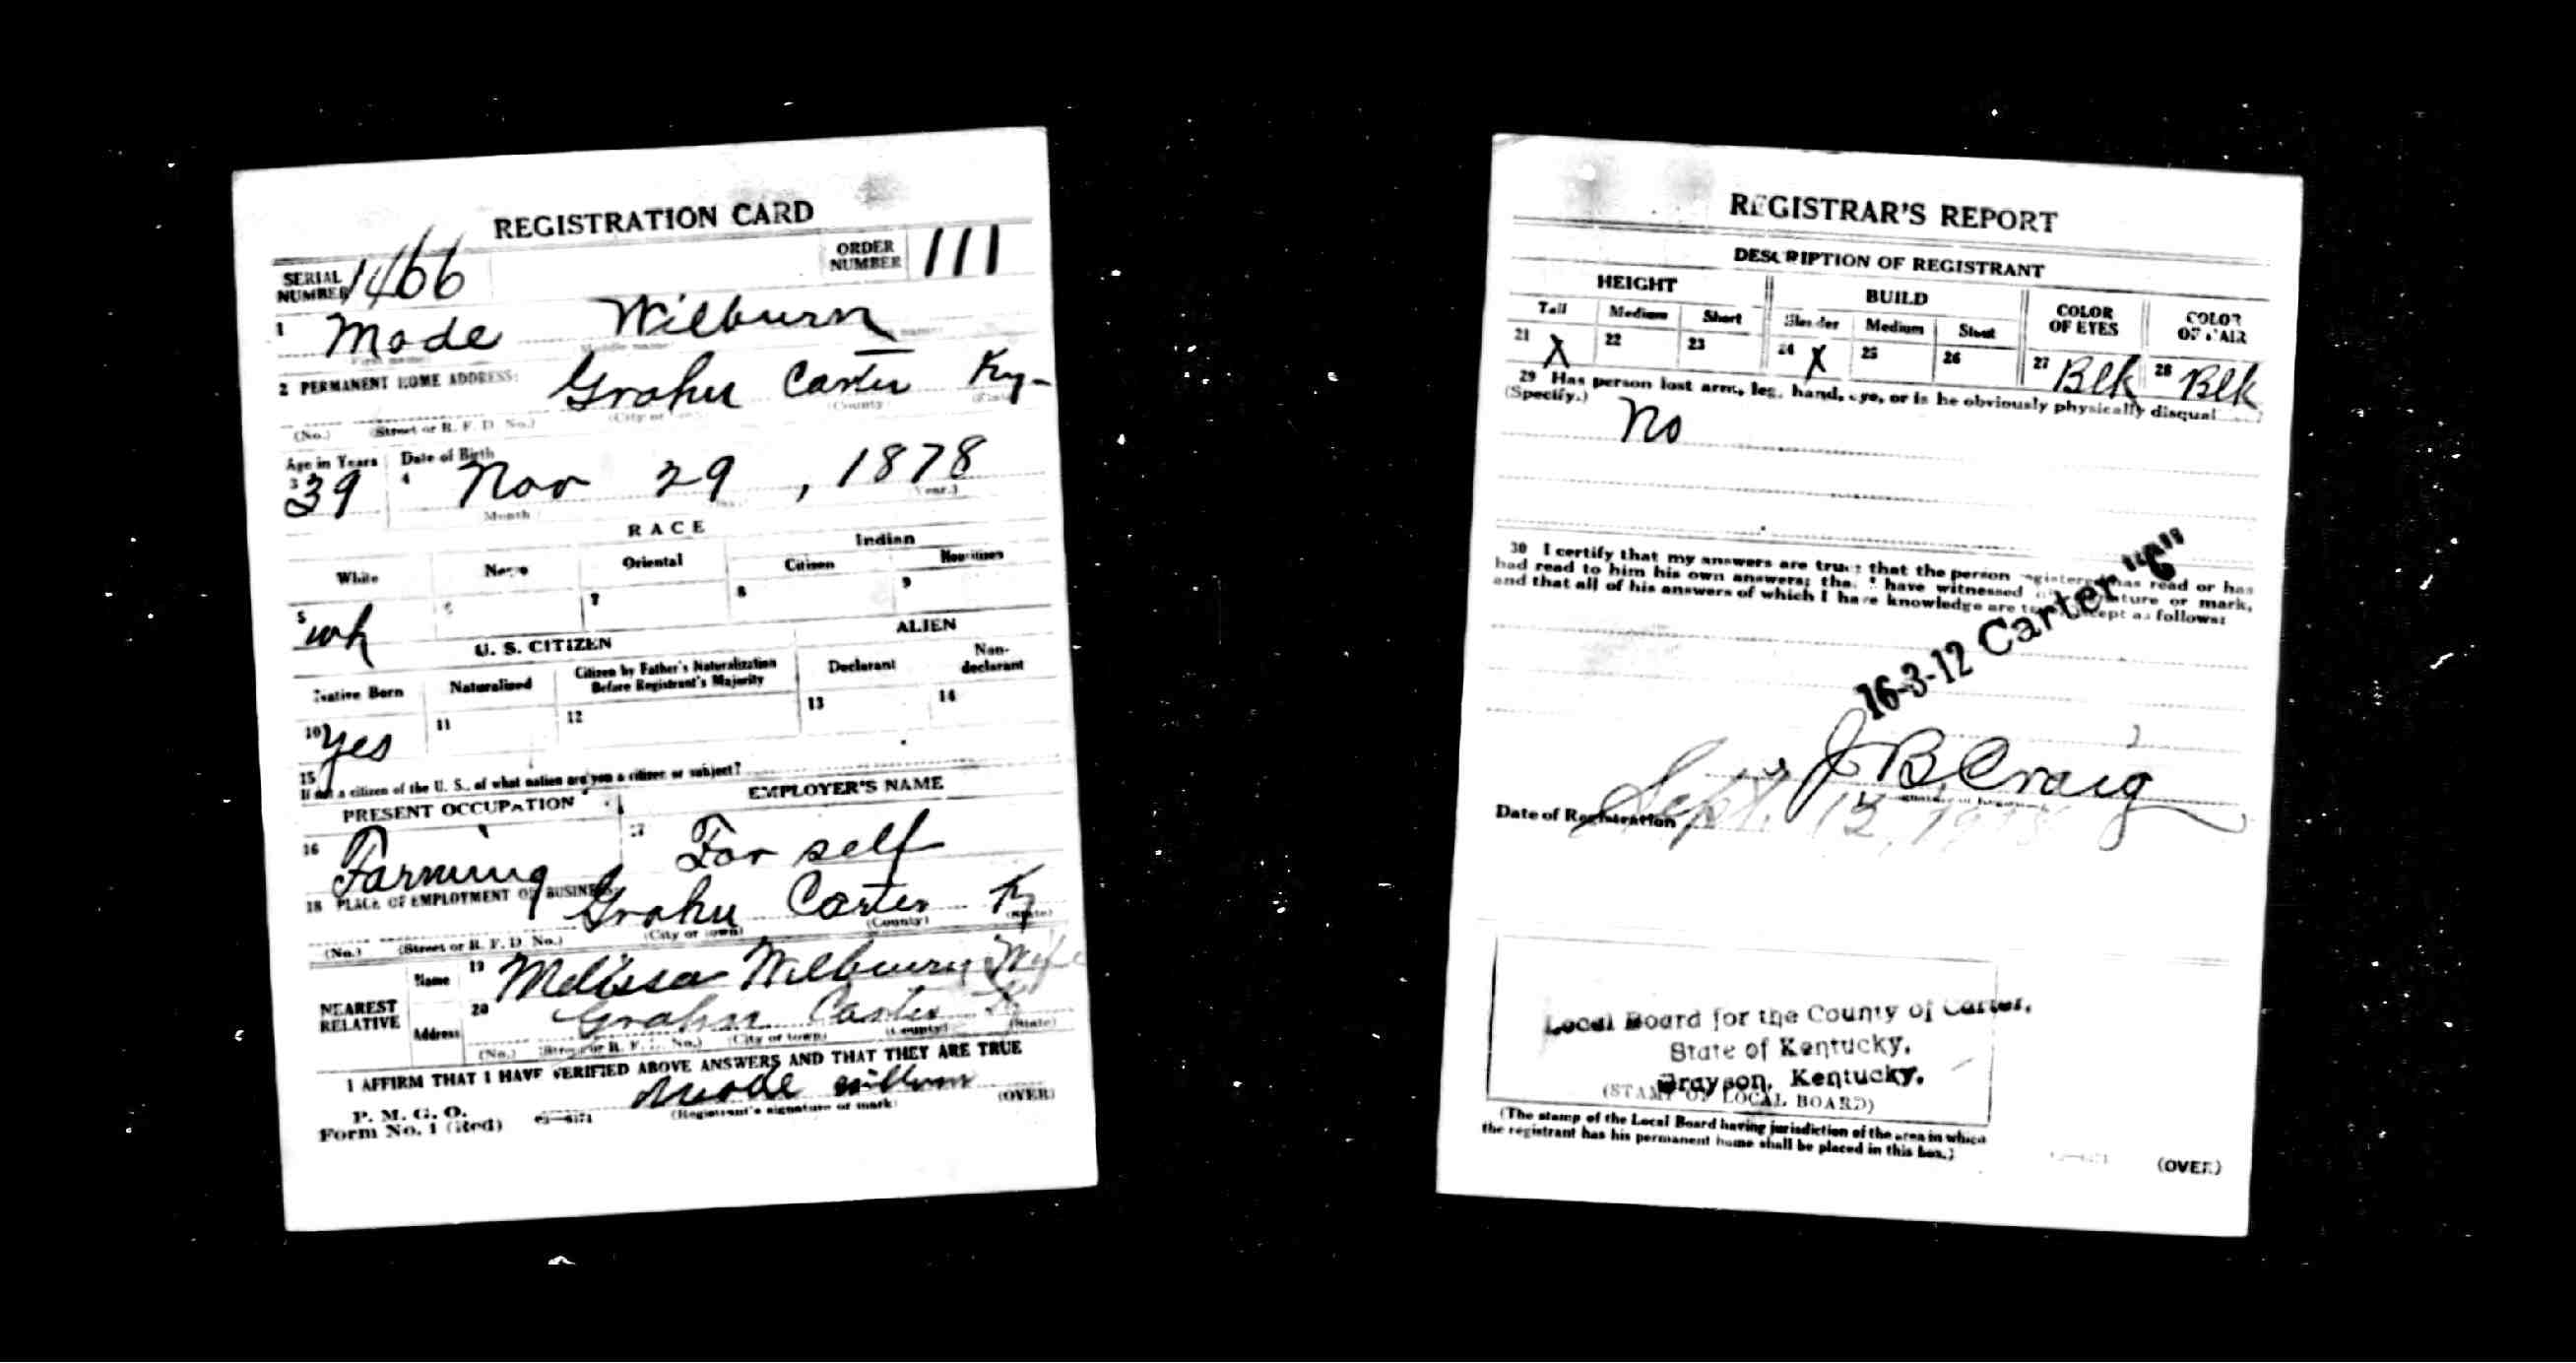 REGISTRATION CARD
SERIAL NUMBER 1466 ORDER NUMBER 111
1 Mode Wilburn
First name Middle name name
2 PERMANENT HOME ADDRESS: Grahn Carter Ky-
(No.) (Street or R. F. D. No.) (City or (County) (State)
Age in Years Date of Birth
3 39 4 Nov 29, 1878
Month Year.)
RACE
White Negro Oriental Indian
Citizen Noncitizen
5 wh 6 7 8 9
U. S. CITIZEN ALIEN
Native Born Naturalized Citizen by Father's Naturalization Before Registrant's Majority Declarant Non-declarant
10 Yes 11 12 13 14
15
If not a citizen of the U. S., of what nation are you a citizen or subject?
PRESENT OCCUPATION EMPLOYER'S NAME
16 Farming 17 For self
18 PLACE OF EMPLOYMENT OR BUSINESS: Grahn Carter Ky
(No.) (Street or R. F. D. No.) (City or town) (County) (State)
NEAREST RELATIVE
Name 19 Melissa Wilburn Wife
Address 20 Grahn Carter Ky
(No.) (Street or R. F. D. No.) (City or town) (County) (State)
I AFFIRM THAT I HAVE VERIFIED ABOVE ANSWERS AND THAT THEY ARE TRUE
P. M. G. O.
Form No. 1 (Red) 03—6171 Mode Wilburn
(Registrant's signature or mark) (OVER)
REGISTRAR'S REPORT
DESCRIPTION OF REGISTRANT
HEIGHT BUILD COLOR OF EYES COLOR OF HAIR
Tall Medium Short Slender Medium Stout
21 X 22 23 24 X 25 26 27 Blk 28 Blk
29 Has person lost arm, leg, hand, eye, or is he obviously physically disqual
(Specify.) No
30 I certify that my answers are true; that the person registered has read or has
had read to him his own answers; that I have witnessed his signature or mark,
and that all of his answers of which I have knowledge are true, except as follows:
16-3-12 Carter "C"
J B Craig
Date of Registration Sept. 12, 1918
Local Board for the County of Carter,
State of Kentucky,
Grayson, Kentucky.
(STAMP OF LOCAL BOARD)
(The stamp of the Local Board having jurisdiction of the area in which
the registrant has his permanent home shall be placed in this box.)
(OVER)